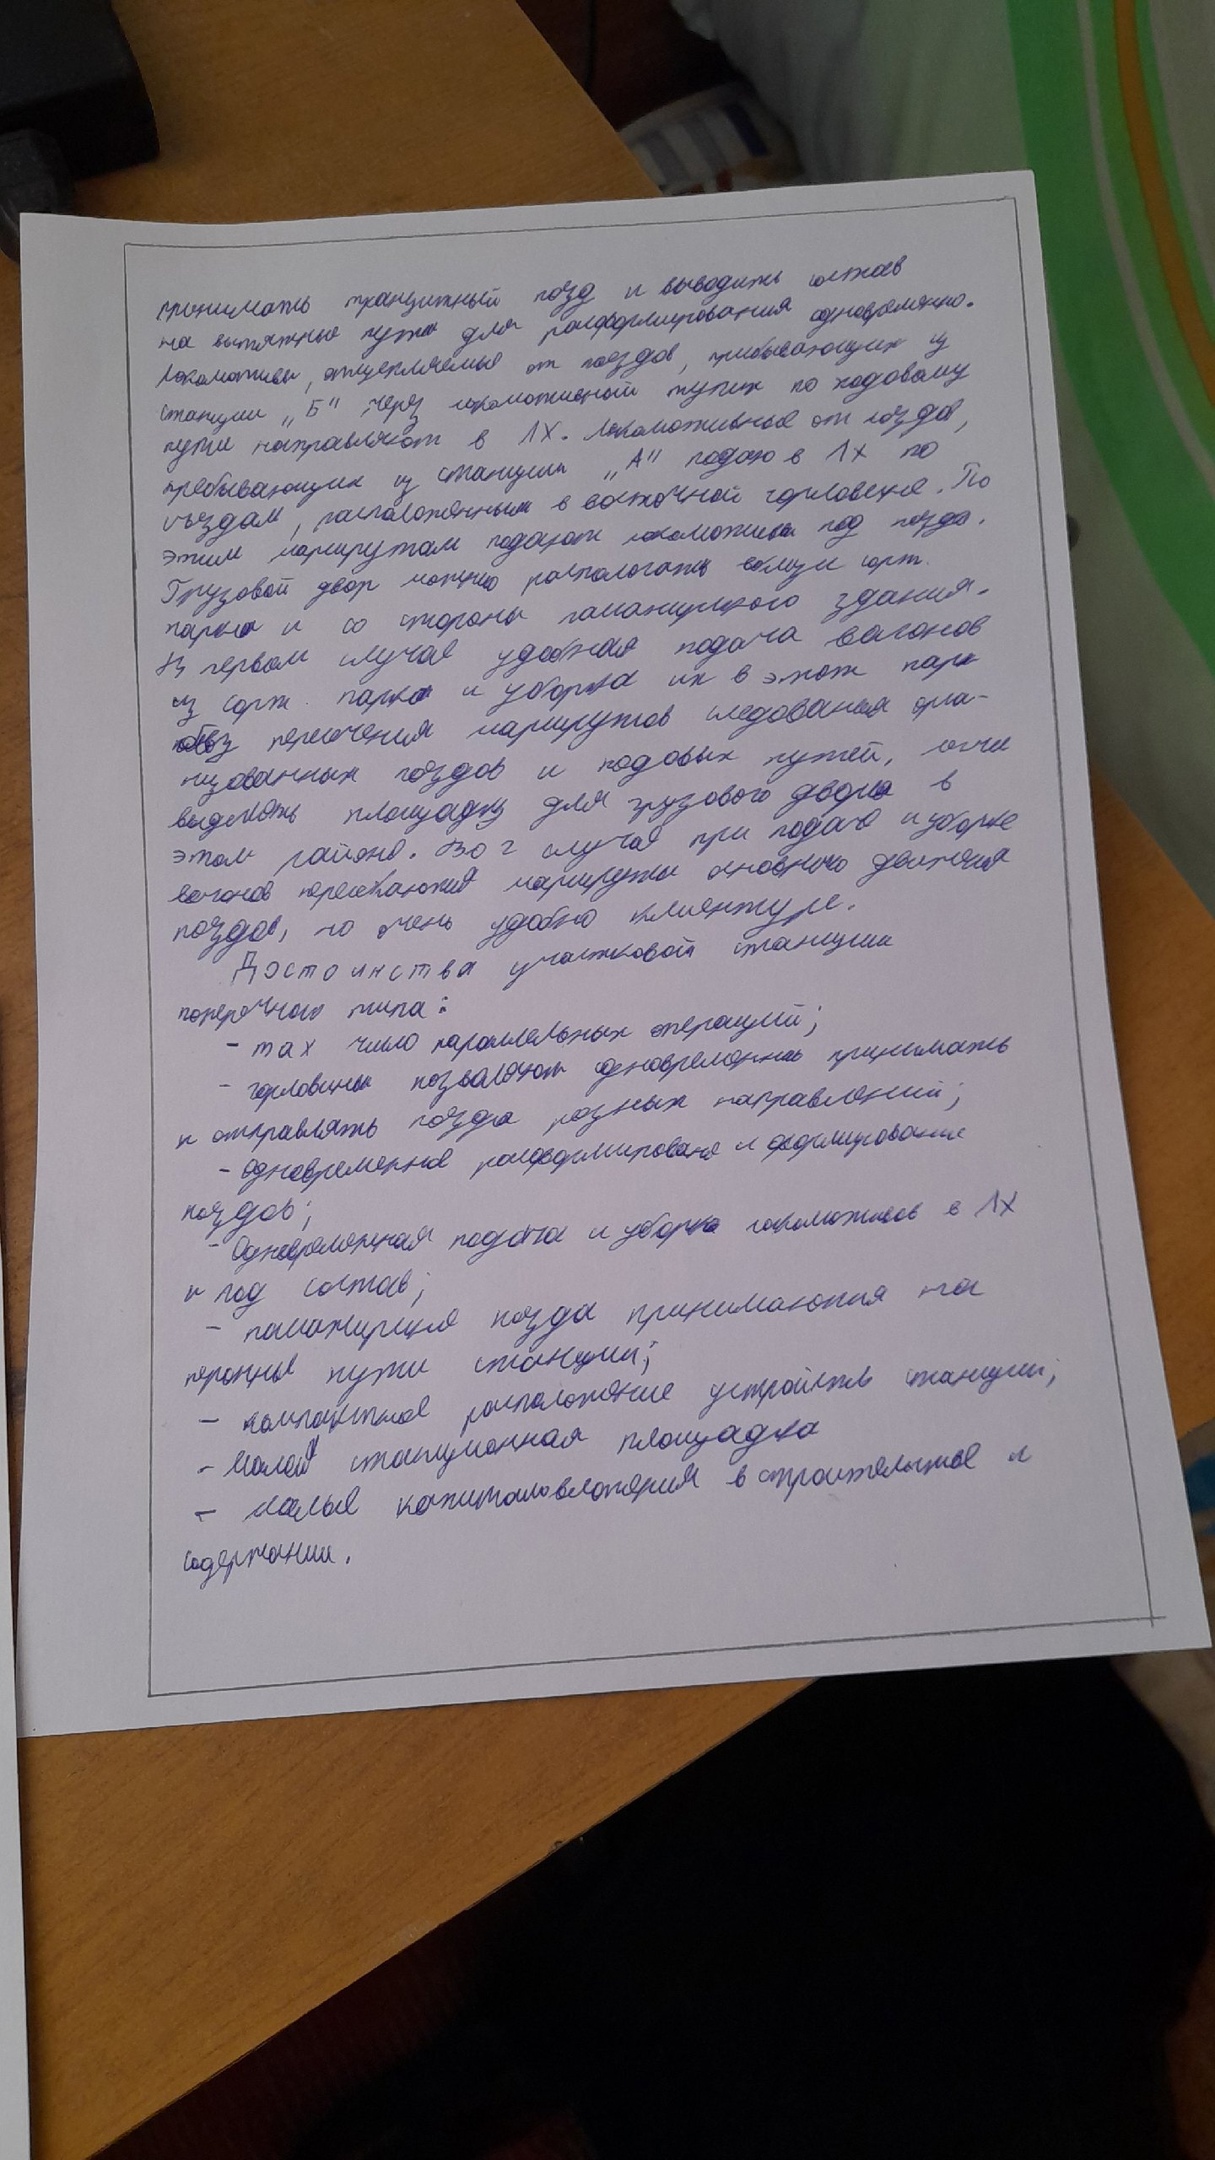 принимать транзитный поезд и выводить состав
на вытяжные пути для расформирования одновременно.
Локомотивы, отцепляемые от поездов, прибывающих из
станции „Б" через локомотивный тупик по ходовому
пути направляют в ЛХ. Локомотивные от поездов,
пребывающих из станции „А" подаю в ЛХ по
съездам, расположенным в восточной горловине. По
этим маршрутам подают локомотивы под поезда.
Грузовой двор можно распологать вблизи сорт.
парка и со стороны пассажирского здания.
Из первом случае удобная подача вагонов
из сорт. парка и уборка их в этот парк
без пересечения маршрутов следования орга-
низованных поездов и ходовых путей, легче
выделять площадку для грузового двора в
этом районе. Во 2 случае при подаче и уборке
вагонов пересекаются маршруты основного движения
поездов, но очень удобно клиентуре.
Достоинства участковой станции
поперечного типа:
- max число параллельных операций;
- горловины позваляют одновременно принимать
и отправлять поезда разных направлений;
- одновременное расформирование и формирование
поездов;
- Одновременная подача и уборка локомотивов в ЛХ
и под состав;
- пассажирские поезда принимаются на
перонные пути станции;
- компактное расположение устройств станции;
- Малая станционная площадка
- малые капиталовложения в строительстве и
содержании.